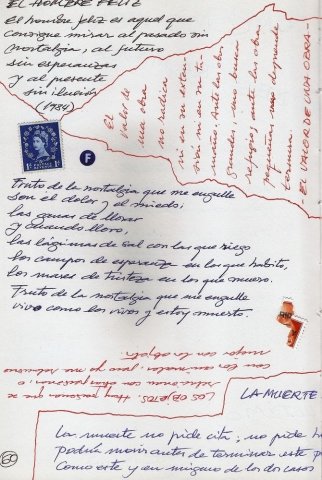 EL HOMBRE FELIZ
El hombre feliz es aquel que
consigue mirar al pasado sin
nostalgia, al futuro
sin esperanzas
y al presente
sin ilusión
(1984)
El
valor de
una obra
no radica
ni en su
ni en su ta-
maño. Ante las obras
grandes, uno busca
refugio; ante las obras
pequeñas uno desprende
ternura.
- EL VALOR DE UNA OBRA -
F
Fruto de la nostalgia que me engulle
son el dolor y el miedo,
las ganas de llorar
y cuando lloro,
las lágrimas de sal con las que riego
los campos de esperanza en los que habito,
los mares de tristeza en los que muero.
Fruto de la nostalgia que me engulle
vivo como los vivos y estoy muerto.
LOS OBJETOS. Hay personas que se
relacionan con otras personas, o
con los animales, pero yo me relaciono
mejor con los objetos.
LA MUERTE
La muerte no pide cita; no pide
podría morir antes de terminar este
Como este y en ninguno de los dos casos
60